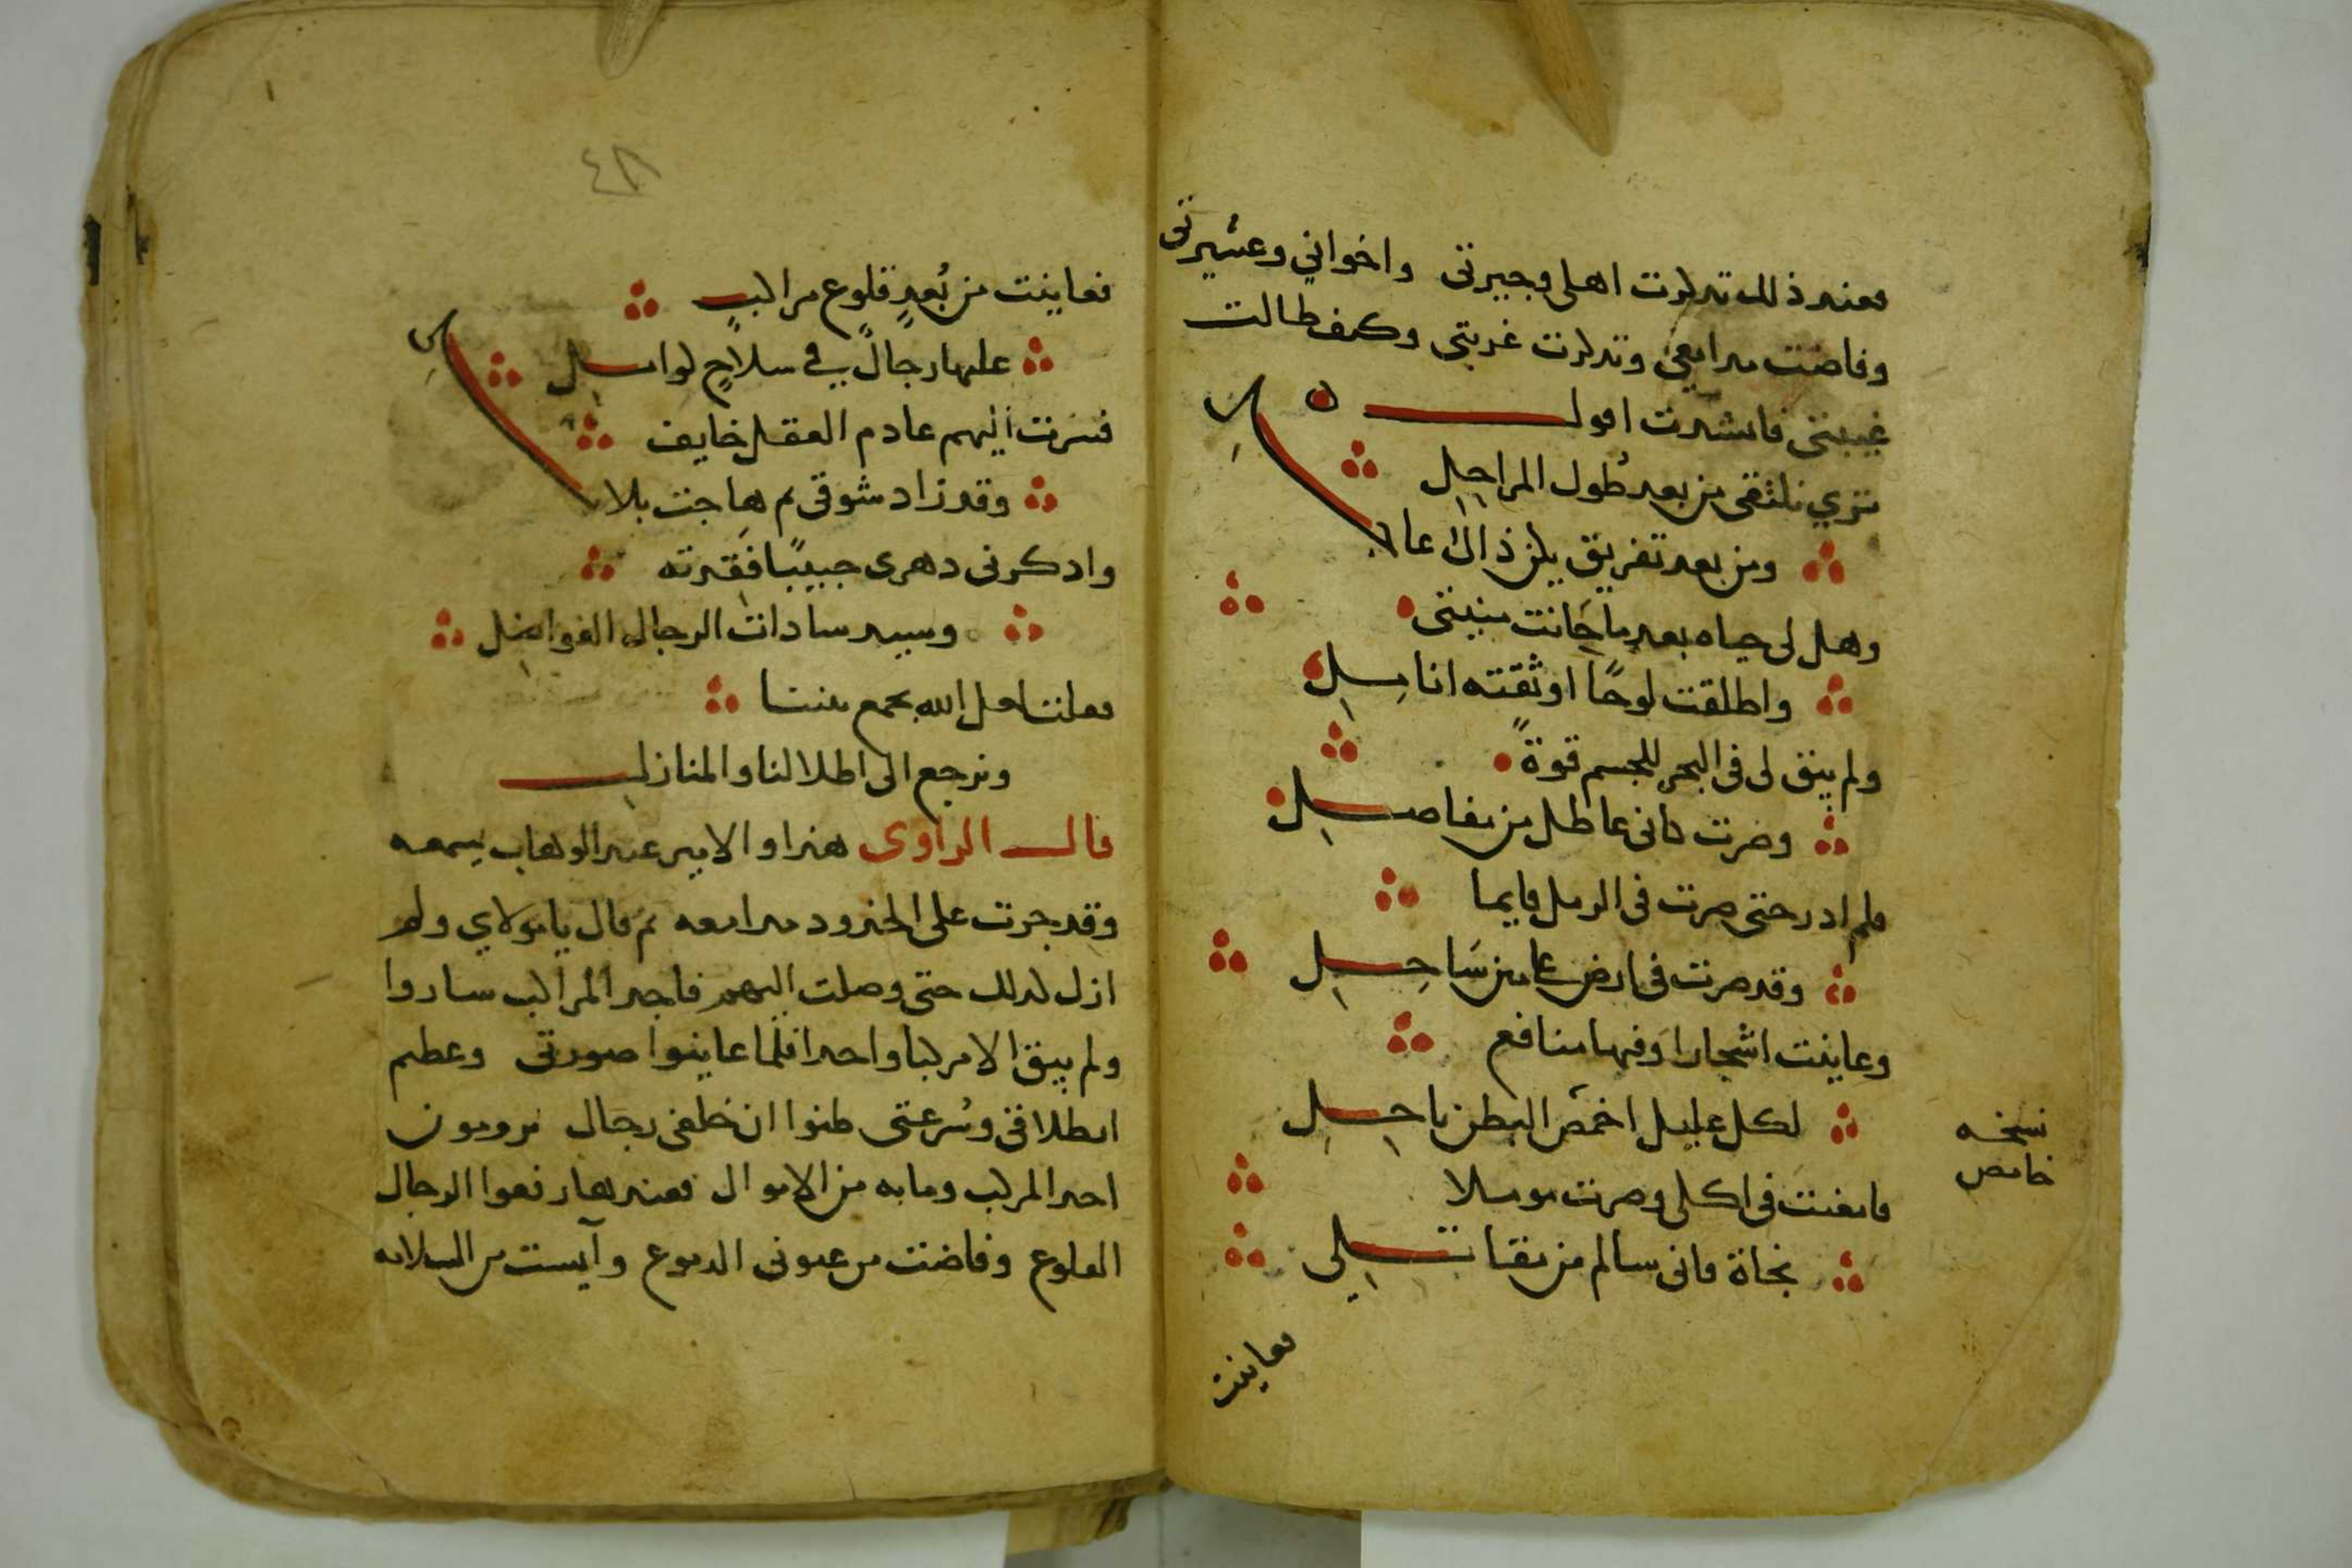 فعند ذلك تذكرت اهلي وجيرتي واخواني وعشيرتي
وفاضت مدامعي وتذكرت غربتي وكيف طالت
غيبتي فانشدت اقول
تري نلتقي من بعد طول المراحل
ومن بعد تفريق يكن ذاك عاجل
وهل لي حياه بعد ما حانت منيتي
واطلقت لوحًا اوثقته اناملي
ولم يبق لي في البحر للجسم قوةً
وصرت كاني عاطل من مفاصلي
فلم ادر حتى صرت في الرمل قايما
وقد صرت في ارض عامن سَاحل
وعاينت اشجارا وفيها منافع
لكل عليل اخمص البطن ناحل
نسخه
خامص
فامعنت في اكلي وصرت موملا
نجاة فاني سالم من مقاتلي
فعاينت
٤٨
فعاينت من بُعدٍ قلوع مراكبٍ
عليها رجالٌ في سلاحٍ كوامل
فسرت اليهم عادم العقل خايف
وقد زاد شوقي ثم هاجت بلابل
وادكرني دهري حبيبًا فقدته
وسيد سادات الرجال الفواضل
فقلت لعل الله يجمع بيننا
ونرجع الى اطلالنا والمنازل
قال الراوي هذا والامير عبد الوهاب يسمعه
وقد جرت على الخدود مدامعه ثم قال يا مولاي ولم
ازل كذلك حتى وصلت اليهم فاجد المراكب ساروا
ولم يبق الا مركبا واحدا فلما عاينوا صورتي وعظم
انطلاقي وسُرعتي ظنوا ان خلفي رجال يرومون
اخذ المركب وما به من الاموال فعندها رفعوا الرجال
القلوع وفاضت من عيوني الدموع وآيست من السلامه